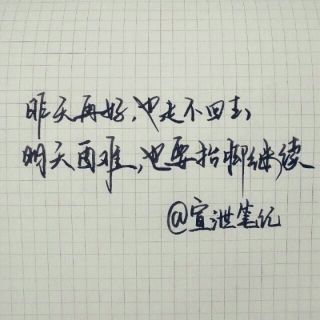 昨天再好,也走不回去,
明天再难,也要抬脚继续
@宣泄笔沅